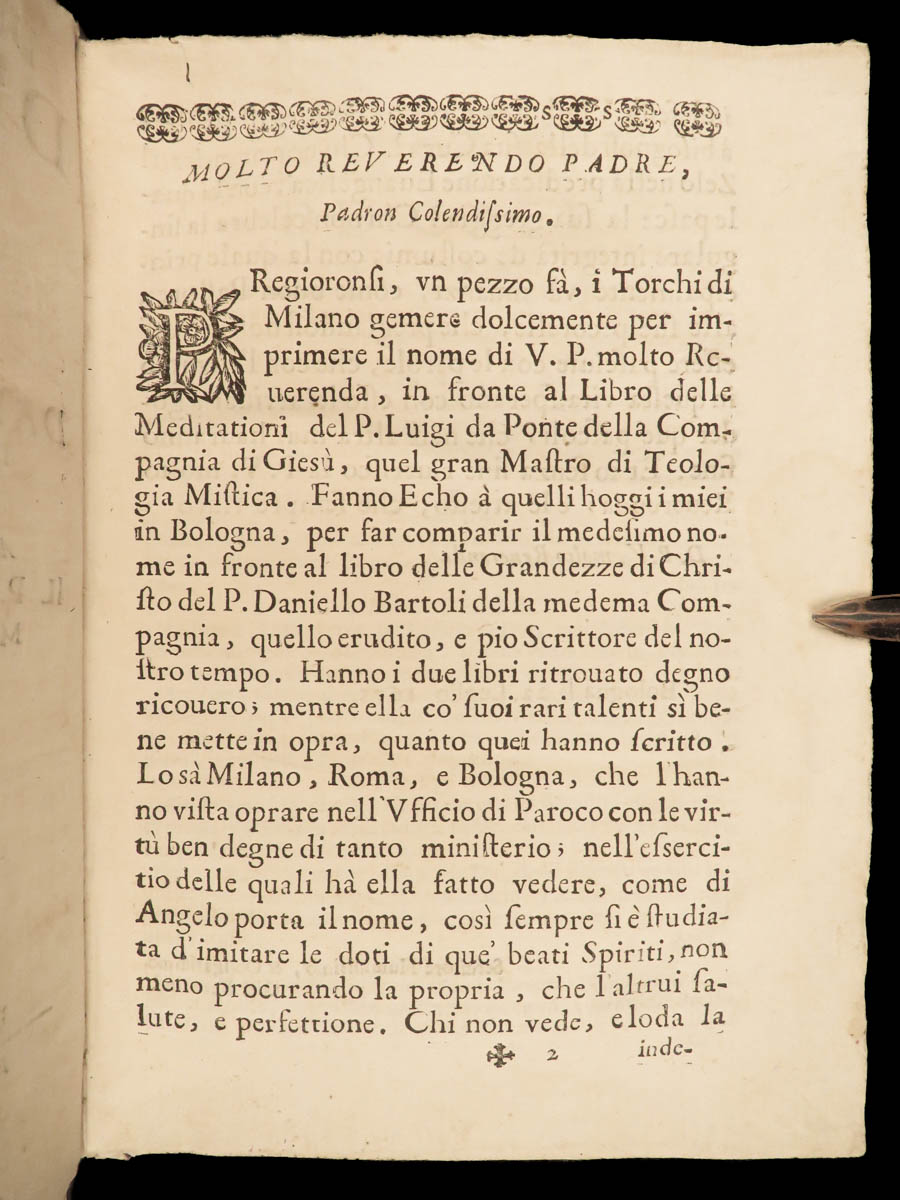 MOLTO REVERENDO PADRE,
Padron Colendiſsimo.
PRegioronſi, vn pezzo fà, i Torchi di
Milano gemere dolcemente per im-
primere il nome di V. P. molto Re-
uerenda, in fronte al Libro delle
Meditationi del P. Luigi da Ponte della Com-
pagnia di Giesù, quel gran Maſtro di Teolo-
gia Miſtica. Fanno Echo à quelli hoggi i miei
in Bologna, per far comparir il medeſimo no-
me in fronte al libro delle Grandezze di Chri-
ſto del P. Daniello Bartoli della medema Com-
pagnia, quello erudito, e pio Scrittore del no-
ſtro tempo. Hanno i due libri ritrouato degno
ricouero; mentre ella co' ſuoi rari talenti sì be-
ne mette in opra, quanto quei hanno ſcritto.
Lo sà Milano, Roma, e Bologna, che l'han-
no viſta oprare nell'Vfficio di Paroco con le vir-
tù ben degne di tanto miniſterio; nell'eſserci-
tio delle quali hà ella fatto vedere, come di
Angelo porta il nome, così ſempre ſi è ſtudia-
ta d'imitare le doti di que' beati Spiriti, non
meno procurando la propria, che l'altrui ſa-
lute, e perfettione. Chi non vede, e loda la
✠ 2 inde-